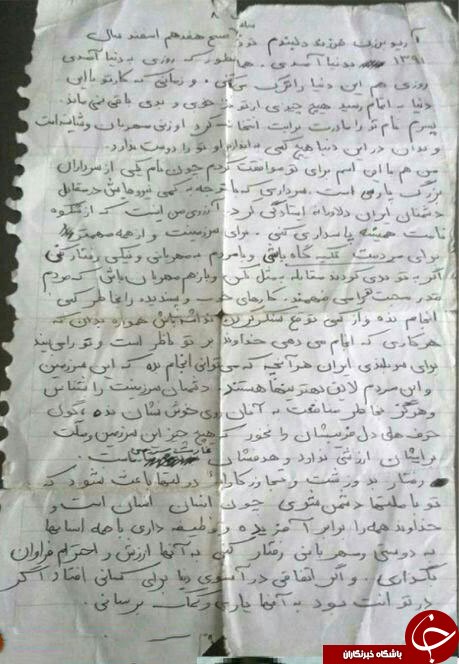 ساعت ۸
آریو برزن فرزند دلبندم تو در صبح هفدهم اسفند سال
۱۳۹۱ به دنیا آمدی. همانطور که روزی به دنیا آمدی
روزی هم این دنیا را ترک می‌کنی و زمانی که کار تو با این
دنیا به اتمام رسید هیچ چیزی از تو جز خوبی و بدی باقی نمی‌ماند.
پسرم نام تو را مادرت برایت انتخاب کرد او زنی مهربان و شاد است
و بدان در این دنیا هیچ کس به اندازه او تو را دوست ندارد.
من هم با این اسم برای تو موافقت کردم چون نام یکی از سرداران
بزرگ پارس است. سرداری که با توجه به کمی نیروهایش در مقابل
دشمنان ایران دلاورانه ایستادگی کرد. آرزوی من این است که از شکوه
نامت همیشه پاسداری کنی. برای سرزمینت و از همه مهمتر
برای مردمت تکیه گاه باشی و با مردم به مهربانی و نیکی رفتار کنی
اگر به تو بدی کردند مقابله به مثل نکن و باز هم مهربان باش که مردم
قدر محبت را می‌فهمند. کارهای خوب و پسندیده را بخاطر کسی
انجام نده و از کسی توقع سپاسگزاری نداشته باش همواره بدان که
هر کاری که انجام می دهی خداوند بر تو ناظر است و تو را می‌بیند
برای سربلندی ایران هر آنچه که می‌توانی انجام بده که این سرزمین
و این مردم لایق بهترینها هستند. دشمنان سرزمینت را بشناس
و هرگز بخاطر منافعت به آنان روی خوش نشان نده، گول
حرفهای دل فریبشان را نخور که هیچ چیز این سرزمین و ملت
برایشان ارزشی ندارد و هدفشان غارت است.
رفتار بد و زشت و تجاوزکارانه دولتها باعث نشود که
تو با ملتها دشمن شوی چون انسان انسان است و
خداوند همه را برابر آفریده و تو وظیفه داری با همه انسانها
به دوستی و مهربانی رفتار کنی به آنها ارزش و احترام فراوان
بگذاری. و اگر اتفاقی در آنسوی دنیا برای کسانی افتاد اگر
در توانت بود به آنها یاری و کمک برسانی.
باشگاه خبرنگاران